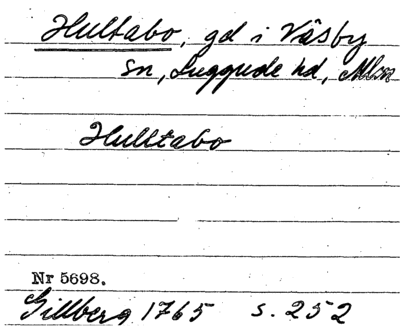 Hultabo, gd i Väsby
sn, Luggude hd, Mlm
Hulltabo
Nr 5698.
Gillberg 1765 s. 252